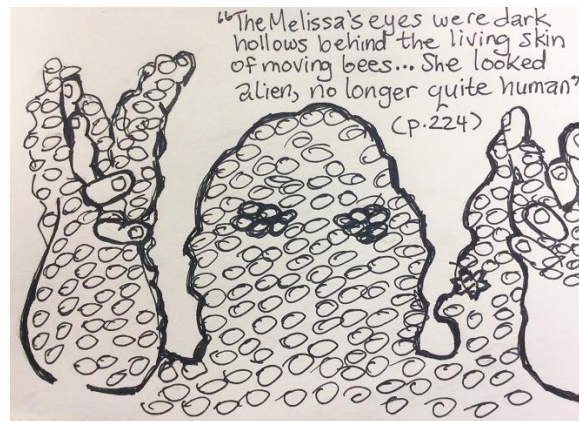 "The Melissa's eyes were dark
hollows behind the living skin
of moving bees... She looked
alien, no longer quite human"
(p.224)